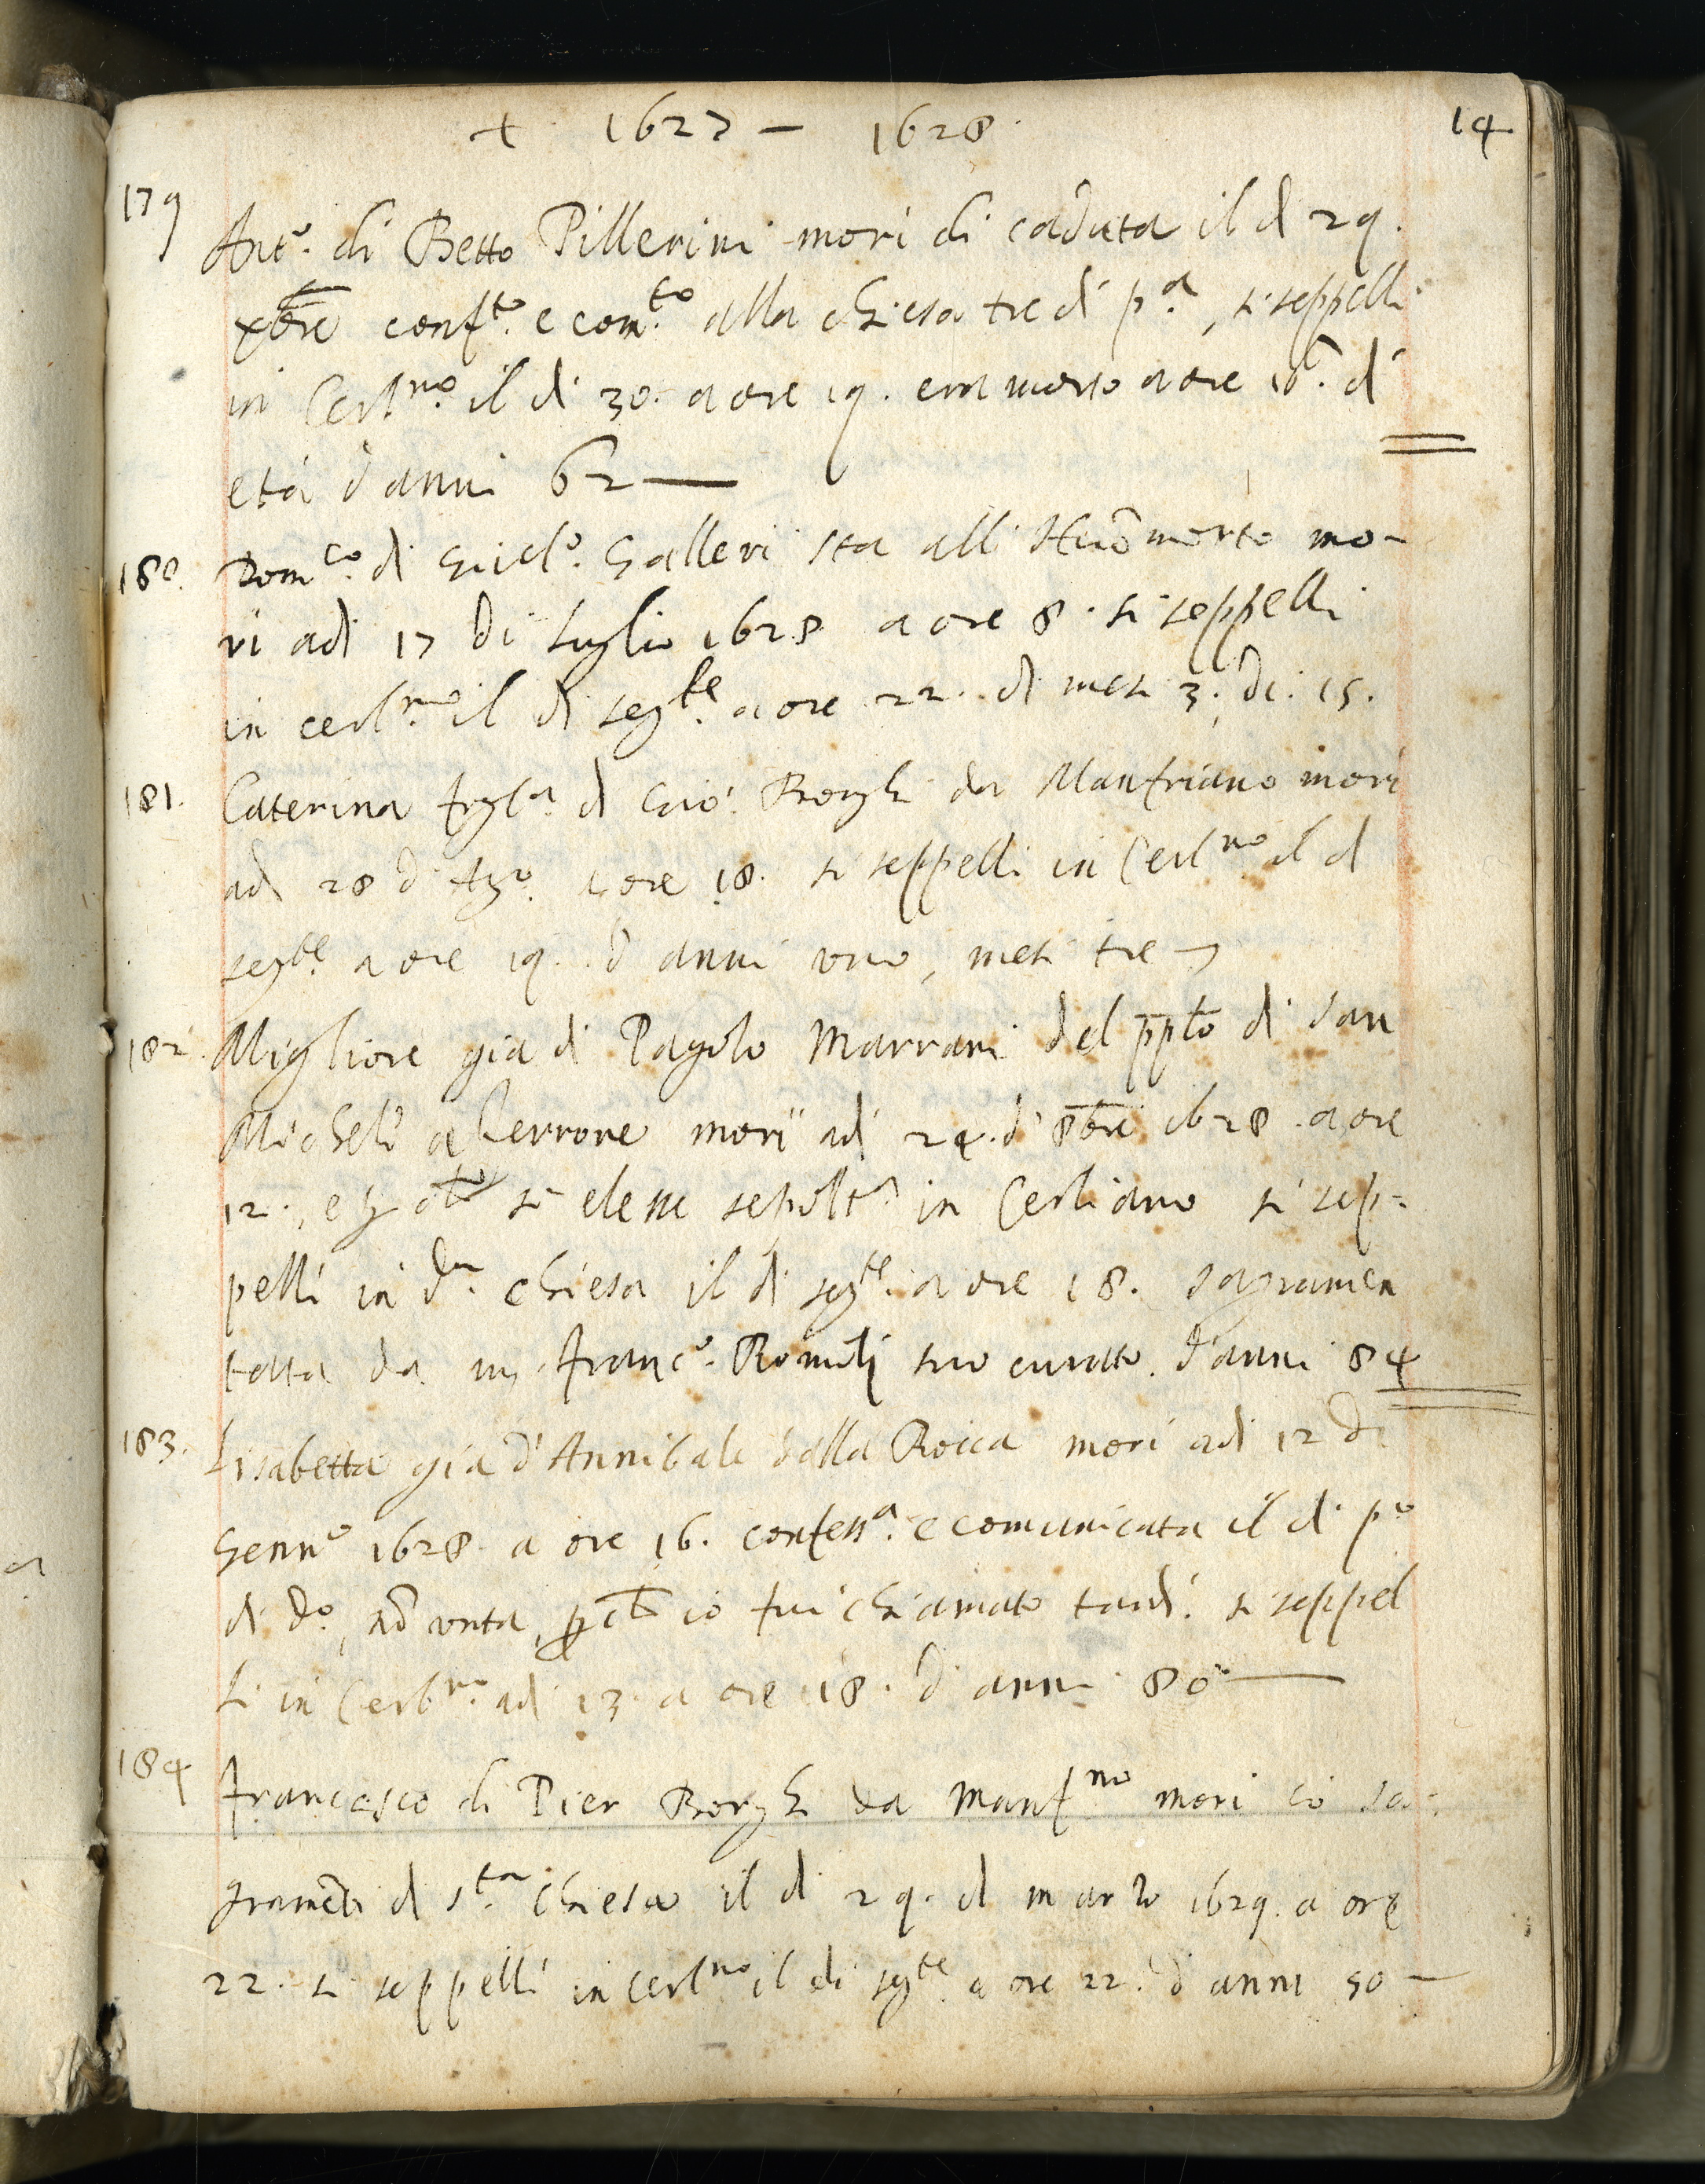 + 1627 — 1628. 14
179 Ant.º di Betto Pillerini morì di caduta il dì 29.
xbre conf.to e com.to alla chiesa tre dì p.a, si seppelli
in Cerl.no il dì 30. a ore 19. era morto a ore 18. d
età d'anni 62 —
180. Dom.co di Giul.º Galleri sta all' morto mo-
ri adì 17 di luglio 1628 a ore 8. si seppelli
in cerl.no il dì seg.te a ore 22. di mesi 3. dì. 15.
181. Caterina figl.a di Giò. Borghi da Manfriano morì
adì 28 d'Ag.º a ore 18. si seppelli in Cerl.no il dì
seg.te a ore 19. d'anni uno, mesi tre —
182. Migliore già di Pagolo Marrani del pplo di San
Michele a Cerrone morì adì 24. d' 8bre 1628. a ore
12., e si elesse sepolt.a in Cerliano si sep-
pellì in d.a chiesa il dì seg.te a ore 18. sagramen
tata da m. Franc.º Romoli suo curato. d'anni 84
183. Lisabetta già d'Annibale dalla Rocca morì adì 12 di
Genn.º 1628. a ore 16. confess.a e comunicata il dì p.º
di d.º, nō unta, p̄che io fui chiamato tardi. si seppel
li in Cerl.no adì 13. a ore 18. d'anni 80 —
184 Francesco di Pier Borghi da Manf.no morì cō sa-
gramēti di s.ta Chiesa il dì 29. di marzo 1629. a ore
22. si seppellì in Cerl.no il dì seg.te a ore 22. d'anni 50 —